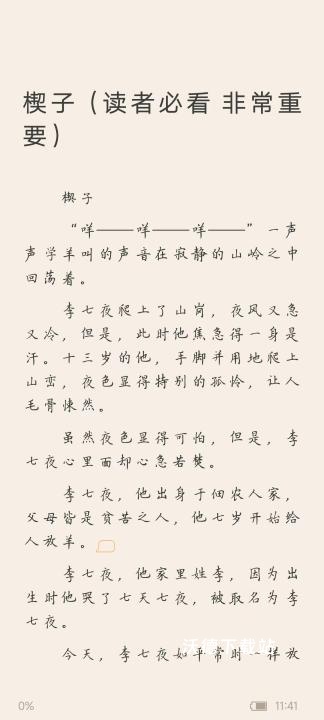 楔子（读者必看 非常重
要）
楔子
“咩——咩——咩——”一声
声学羊叫的声音在寂静的山岭之中
回荡着。
李七夜爬上了山岗，夜风又急
又冷，但是，此时他焦急得一身是
汗。十三岁的他，手脚并用地爬上
山峦，夜色显得特别的孤怜，让人
毛骨悚然。
虽然夜色显得可怕，但是，李
七夜心里面却心急若焚。
李七夜，他出身于佃农人家，
父母皆是贫苦之人，他七岁开始给
人放羊。
李七夜，他家里姓李，因为出
生时他哭了七天七夜，被取名为李
七夜。
今天，李七夜如平常时一样放
沃德下载站
0%
11:41